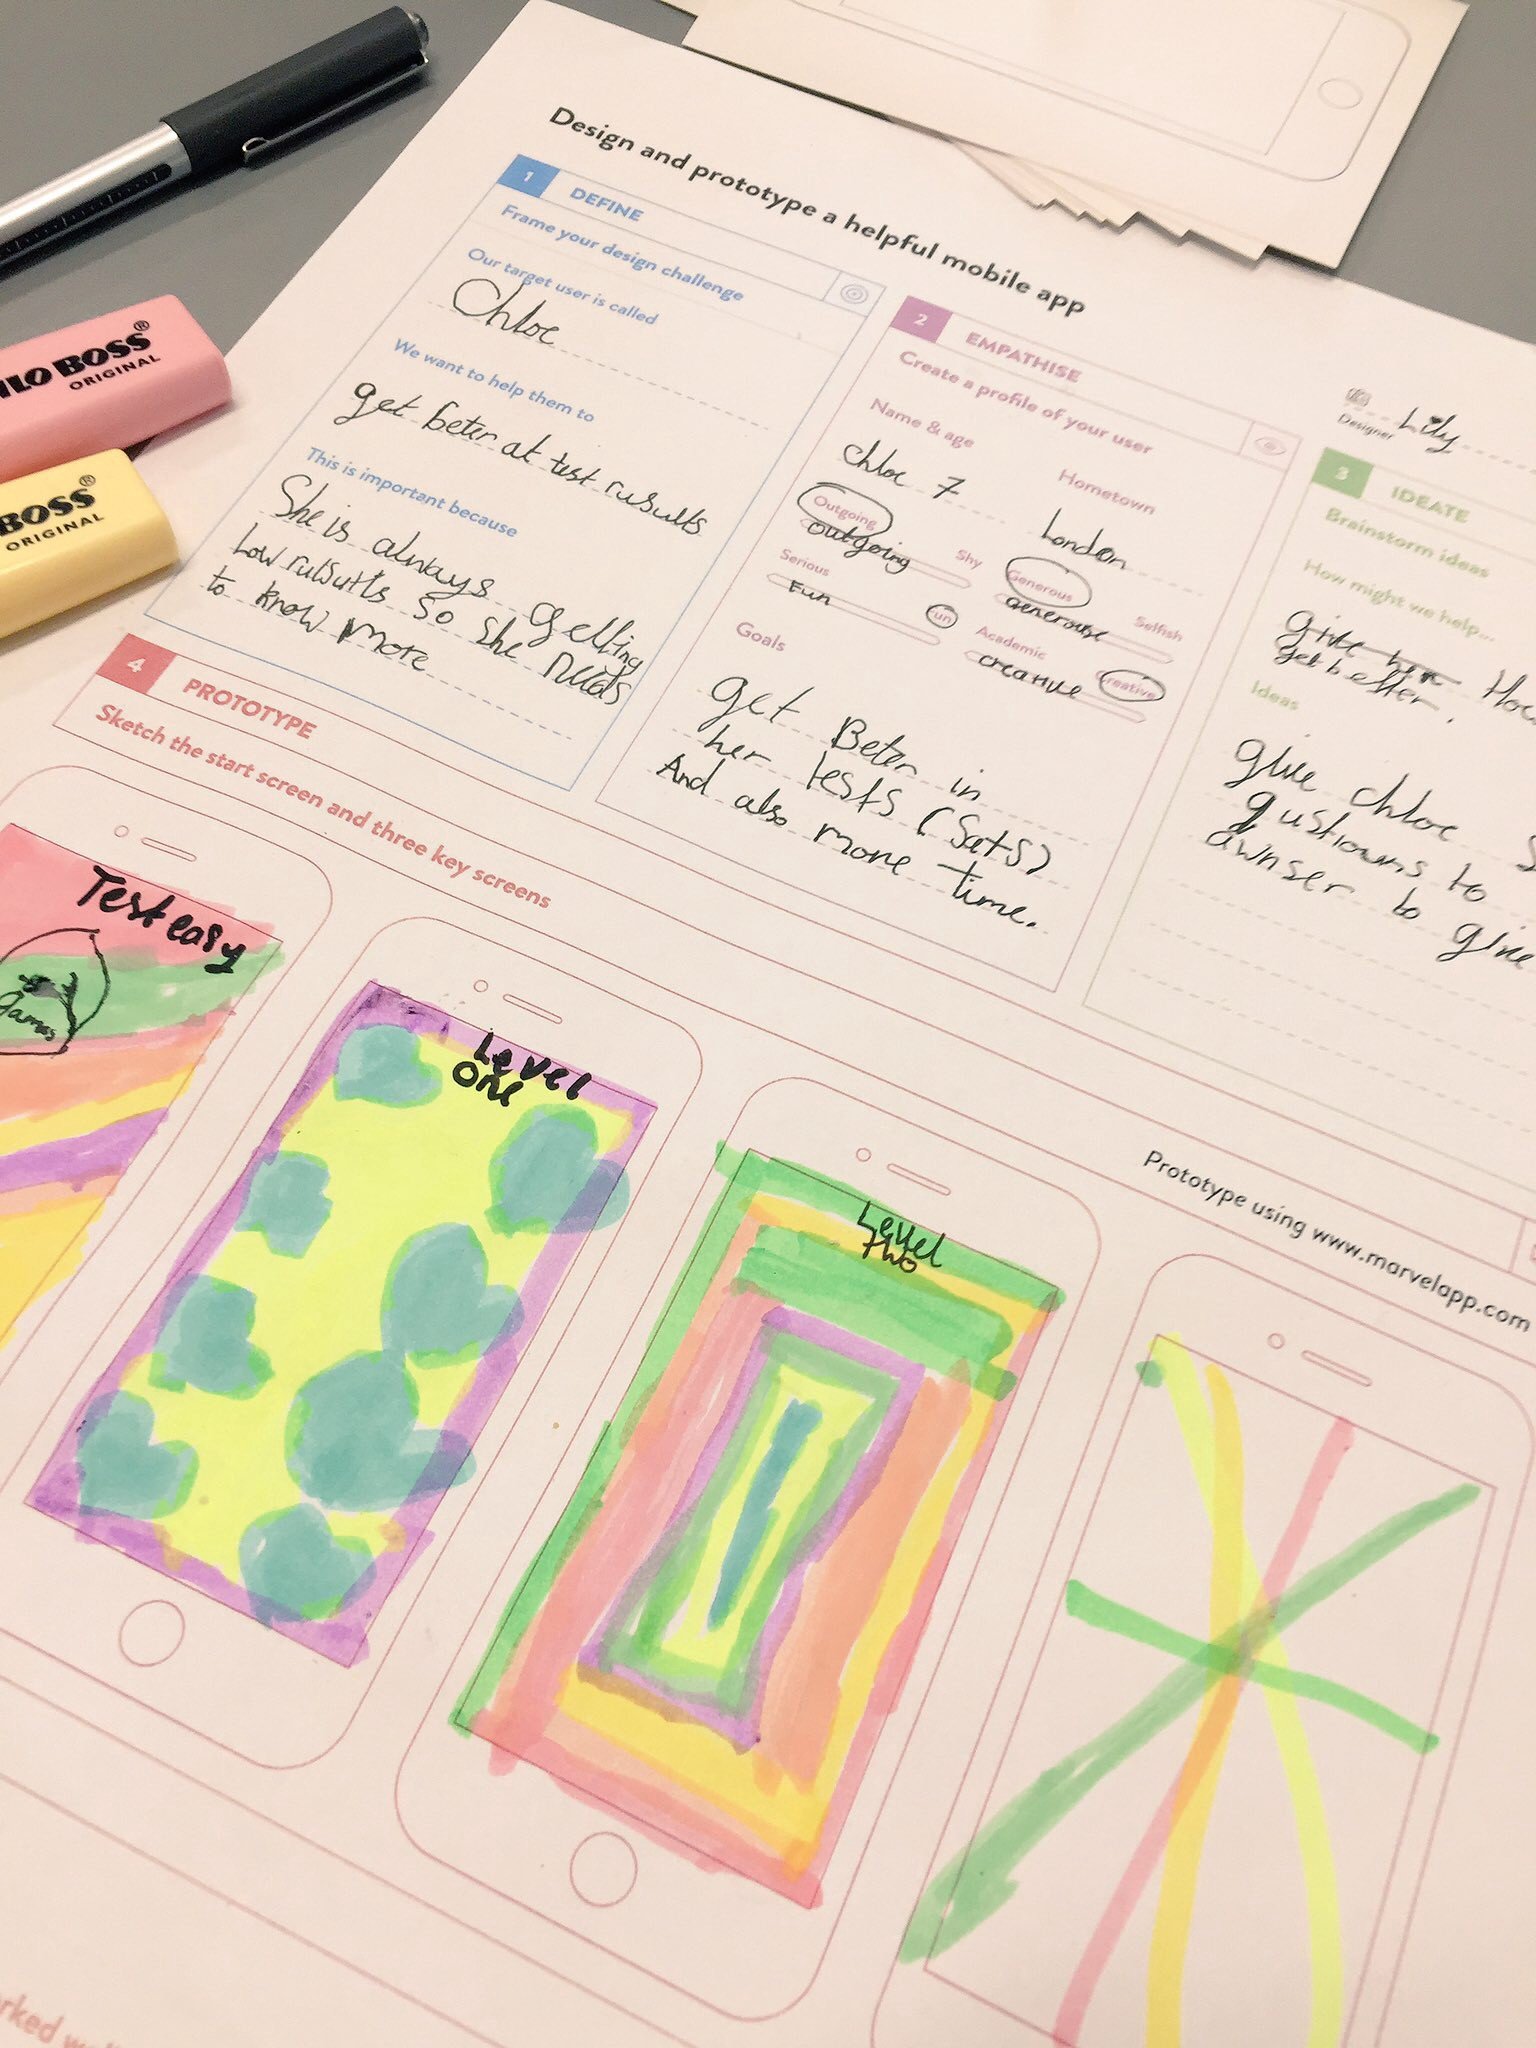 Design and prototype a helpful mobile app
1 DEFINE
Frame your design challenge
Our target user is called
Chloe
We want to help them to
get beter at test rusults
This is important because
She is always getting
Low rusults so she needs
to know more
2 EMPATHISE
Create a profile of your user
Name & age
Chloe 7
Hometown
London
Outgoing
Shy
outgoing
Generous
Selfish
generouse
Serious
Fun
Fun
Academic
Creative
creative
Goals
get Beter in
her tests (Sats)
And also more time.
Designer Lily
3 IDEATE
Brainstorm ideas
How might we help...
give her
get better.
Ideas
give chloe
qustiowns to
awnser to give
4 PROTOTYPE
Sketch the start screen and three key screens
Test easy
games
Level
One
Level
two
Prototype using www.marvelapp.com
ILO BOSS®
ORIGINAL
BOSS®
ORIGINAL